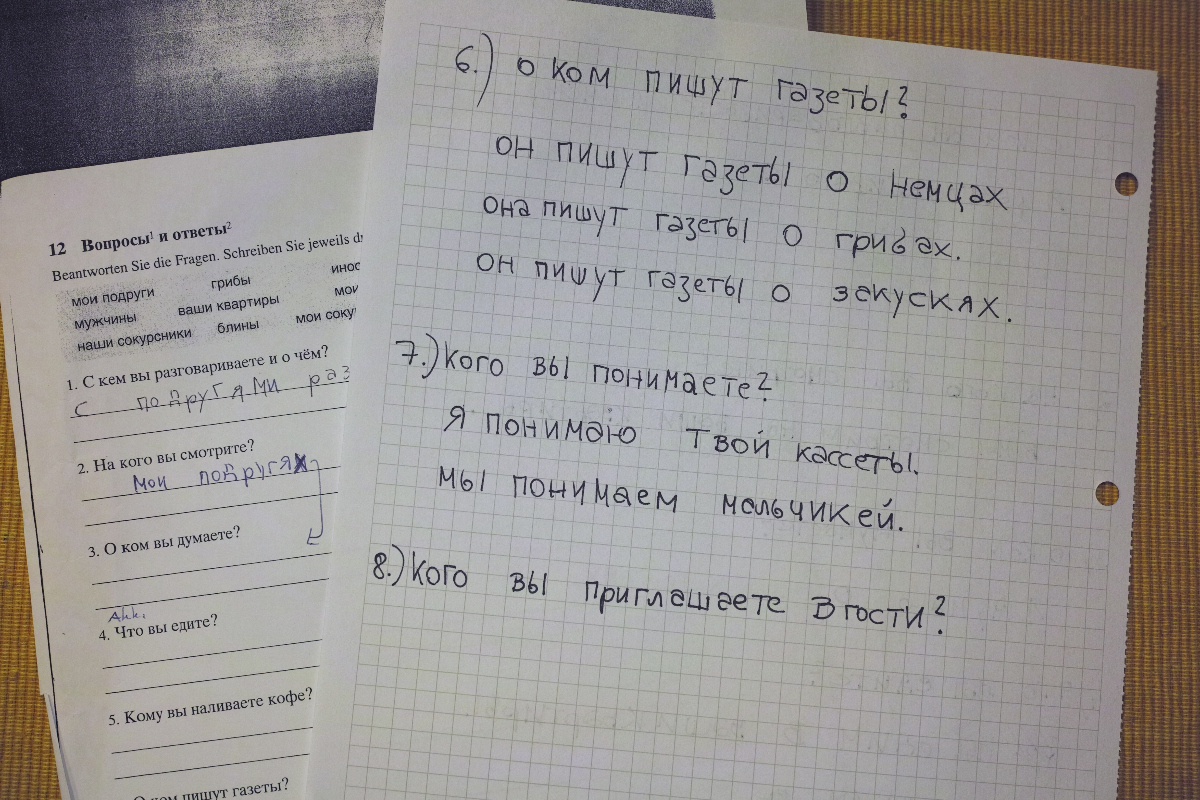 12 Вопросы¹ и ответы²
Beantworten Sie die Fragen. Schreiben Sie jeweils
мои подруги грибы
мужчины ваши квартиры мои
наши сокурсники блины мои
1. С кем вы разговариваете и о чём?
с подругями раз
2. На кого вы смотрите?
мои подругях
3. О ком вы думаете?
Akk.
4. Что вы едите?
5. Кому вы наливаете кофе?
пишут газеты?
6.) о ком пишут газеты?
он пишут газеты о немцах
она пишут газеты о грибах.
он пишут газеты о закусках.
7.) Кого вы понимаете?
Я понимаю твой кассеты.
мы понимаем мальчикей.
8.) Кого вы приглашаете в гости?